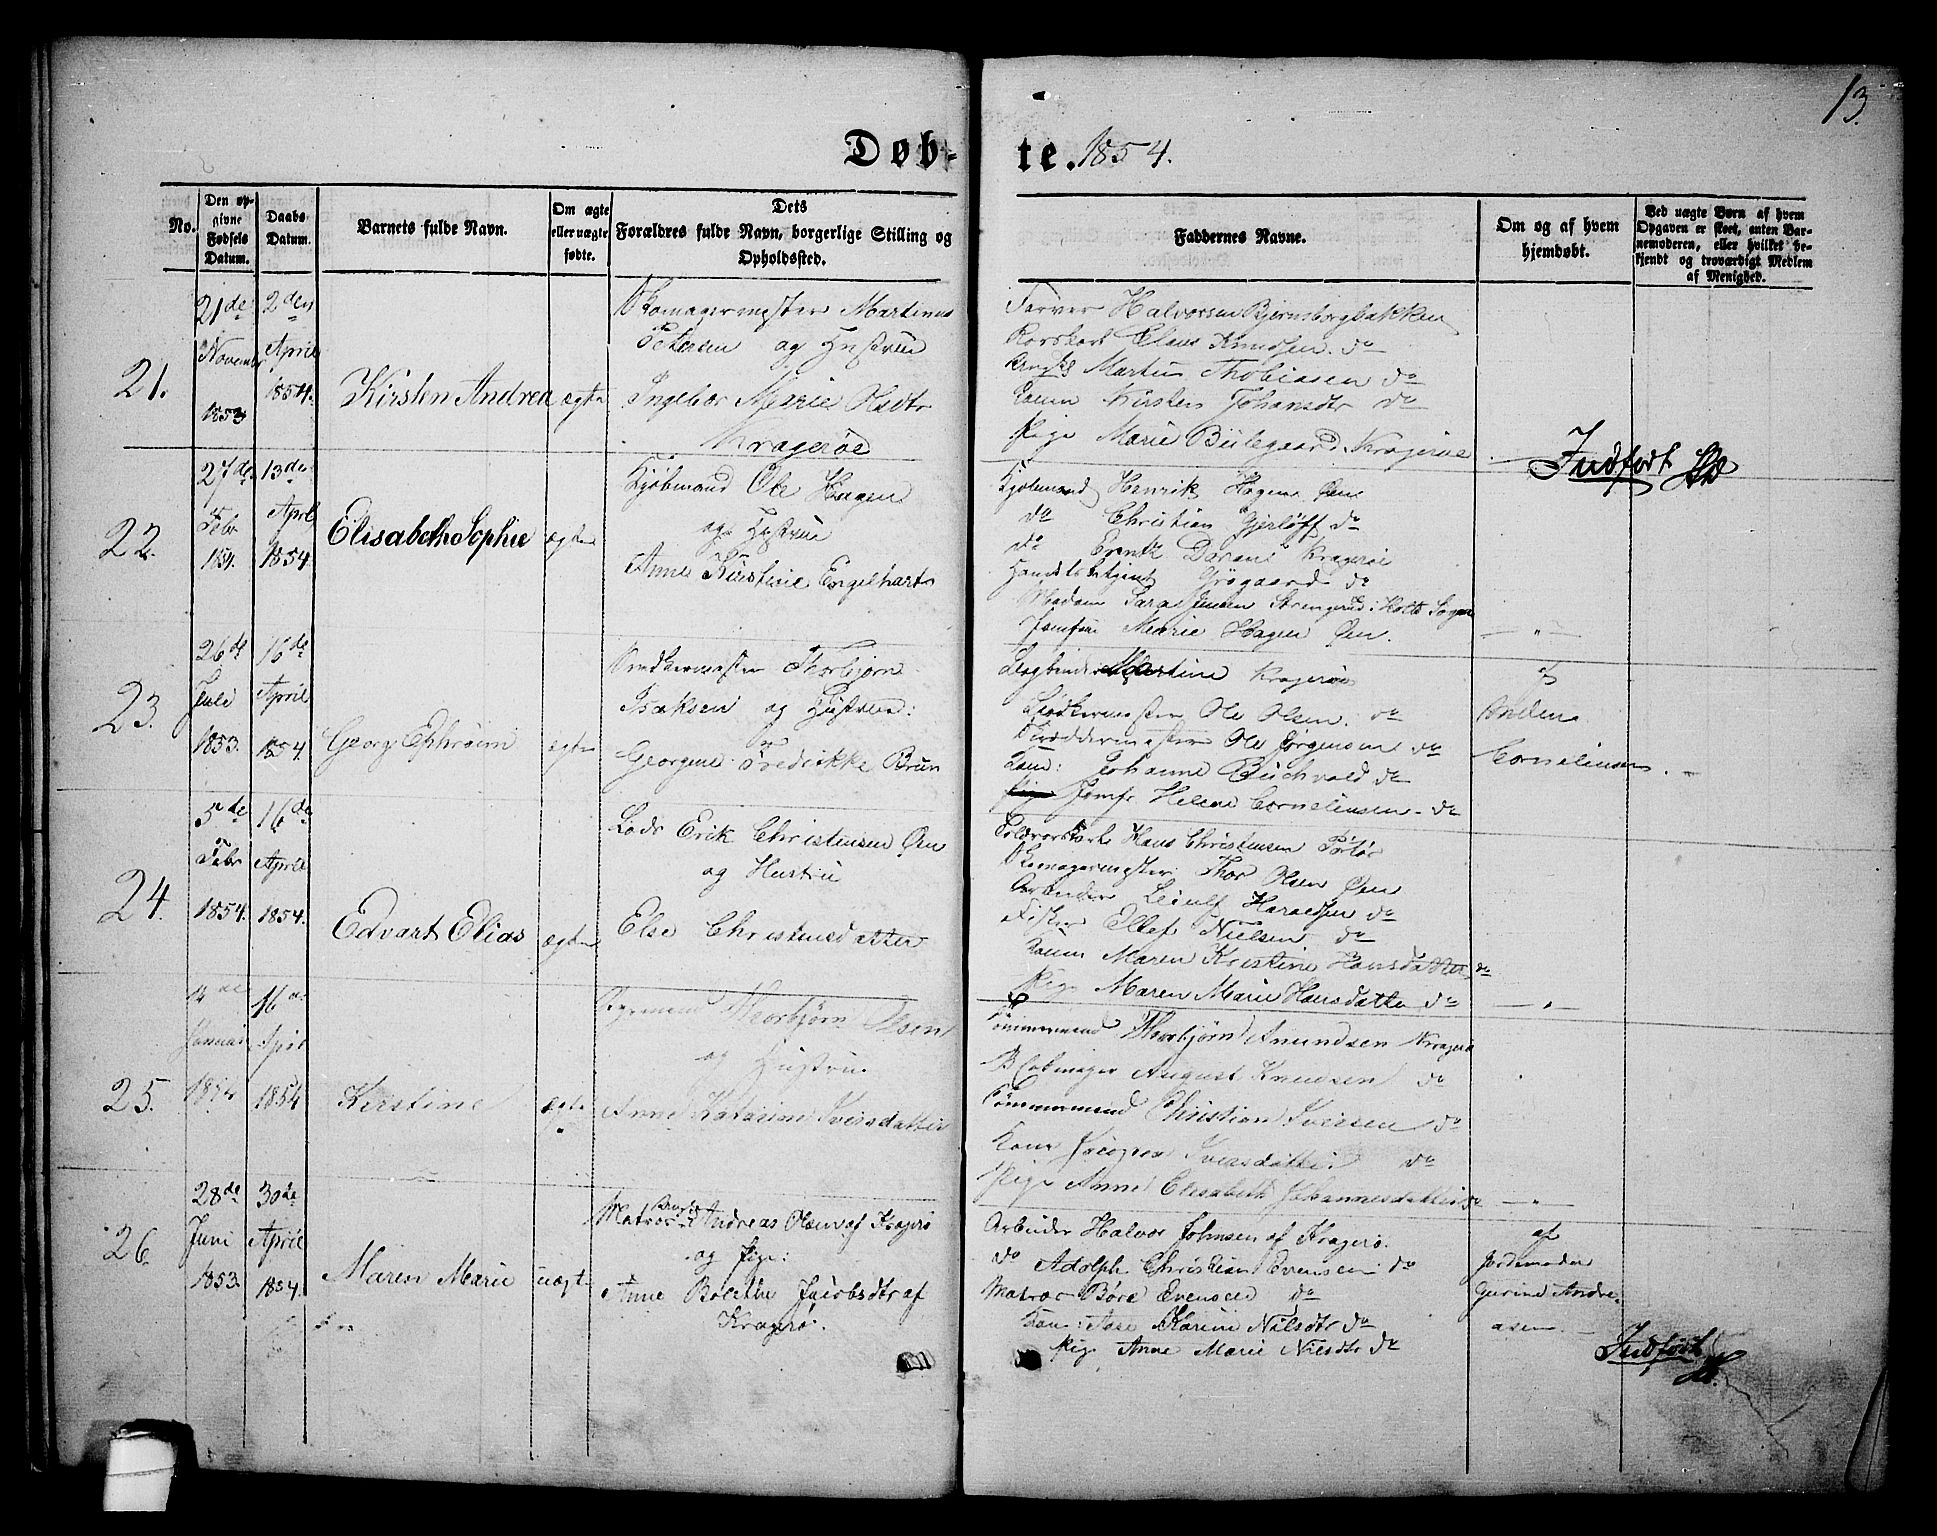 13.
Døb- te. 1854.
No.
Den opgivne Fødsels Datum.
Daabs Datum.
Barnets fulde Navn.
Om ægte eller uægte fødte.
Dets Forældres fulde Navn, borgerlige Stilling og Opholdssted.
Faddernes Navne.
Om og af hvem hjemdøbt.
Ved uægte Børn af hvem Opgaven er skeet, enten Barnemoderen, eller hvilket bekjendt og troværdigt Medlem af Menighed.
21.
21de
November
1853
2den
April
1854.
Kirsten Andrea
ægte
Skomagermester Martinus
Petersen og Hustrue
Ingebor Marie Olsdtr
Kragerøe
Farver Halvorsen Bjørnsborgbakken
Claus Knudsen. do
Martin Thobiasen do
Kirsten Johansdtr do
Pige Marie Kragerøe
Indført
22.
27de
Febr
1854.
13de
April
1854.
Elisabeth Sophie
ægte
Kjøbmand Ole Hagen
og Hustrue
Anne Kirstine Engelhart
Kjøbmand Henrik Hagen Øen
do Christian Gjerløff do
do Kragerøe
do
Madam i Holts Sogn
Jomfrue Marie Hagen Øen.
— " —
23.
26de
Juli
1853.
16de
April
1854.
Georg Ephraim
ægte
Snedkermester Thorbjørn
Isaksen og Hustrue:
Georgine Fredrikke Brun
Martine Kragerøe
Ole Olsen. do
Ole Jørgensen do
Johanne Buchvald do
Jomfr. Helene Cornelinsen. do
af
Cornelinsen. —
24.
5de
Febr
1854.
16de
April
1854.
Edvart Elias
ægte
Lods Erik Christensen Øen
og Hustru
Else Christensdatter
Hans Christensen Portør
Skomagermester Thor Olsen Øen
Arbeider Leiulf Haraldsen do
Fisker Ellef Nielsen do
Maren Kristine Hansdatter do
Pige Maren Marie Hansdatter do
— " —
25.
Januar
1854
16de
April
1854
Kirstine
ægte
Thorbjørn Olsen
og Hustrue
Anne Katarine Iversdatter
Tømmermand Thorbjørn Amundsen Kragerø
August Knudsen do
Tømmermand Christian Iversen do
Kone Iversdatter do
Pige Anne Elisabeth Johannesdatter do
— " —
26.
28de
Juni
1853.
30de
April
1854.
Maren Marie
uægte
Matros Andreas Olsen af Kragerø
og Pige:
Anne Bolethe Jacobsdtr af
Kragerø.
Arbeider Halvor Johnsen af Kragerø.
do Adolph Christian Evensen do
Matros Børe Evensen do
Kone: Aase Karine Nilsdtr do
Pige Anne Marie Nilsdtr do
af
Jordemoder
Gurine Andre-
asen. —
Indført